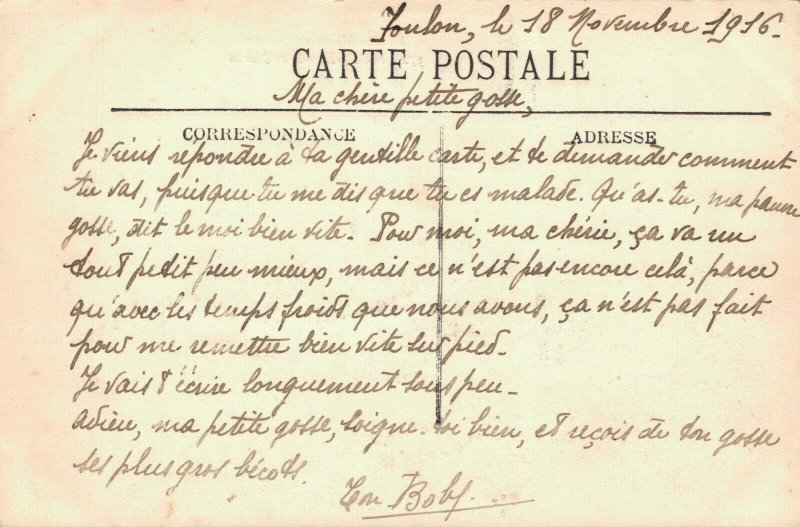 Toulon, le 18 Novembre 1916.
CARTE POSTALE
Ma chère petite gosse,
CORRESPONDANCE
ADRESSE
Je viens répondre à ta gentille carte, et te demander comment
tu vas, puisque tu me dis que tu es malade. Qu'as-tu, ma pauvre
gosse, dit le moi bien vite. Pour moi, ma chérie, ça va un
tout petit peu mieux, mais ce n'est pas encore celà, parce
qu'avec les temps froids que nous avons, ça n'est pas fait
pour me remettre bien vite sur pied.
Je vais t'écrire longuement sous peu.
Adieu, ma petite gosse, soigne-toi bien, et reçois de ton gosse
ses plus gros bécots.
Ton Bobf.